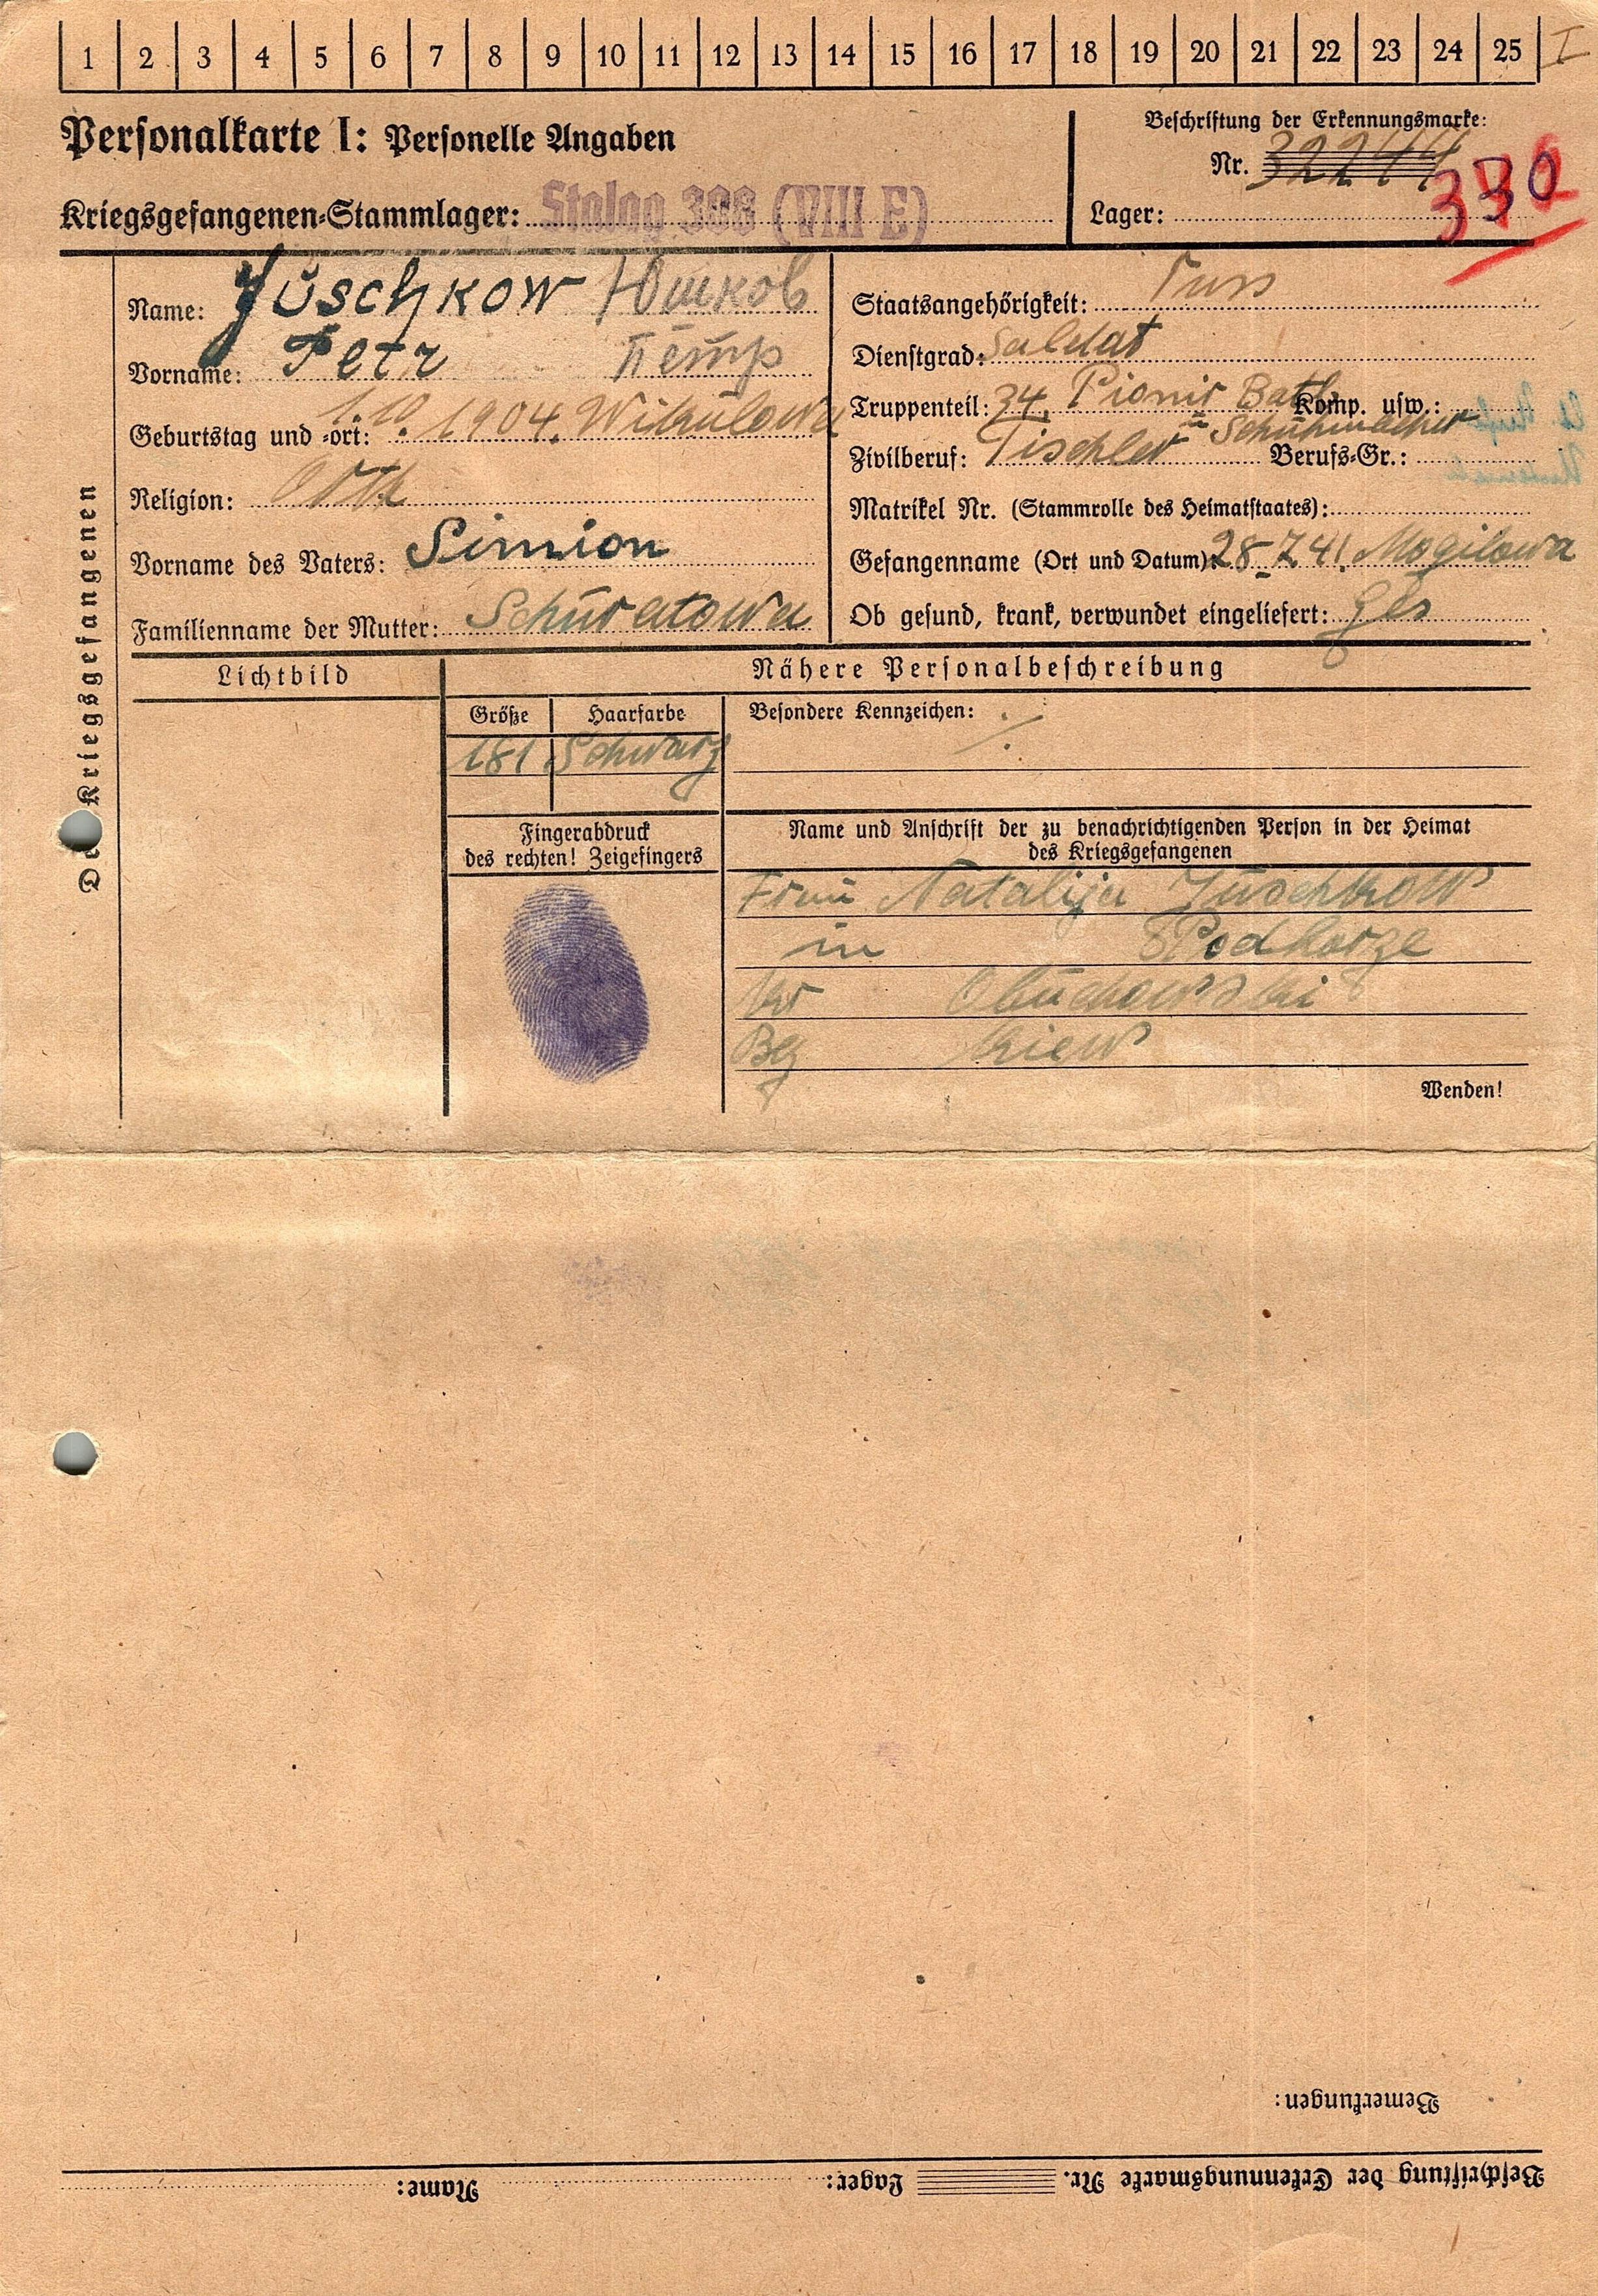 1 2 3 4 5 6 7 8 9 10 11 12 13 14 15 16 17 18 19 20 21 22 23 24 25 I
Personalkarte I: Personelle Angaben
Beschriftung der Erkennungsmarke:
Nr. 32244
330
Kriegsgefangenen-Stammlager: Stalag 308 (VIII E)
Lager:
Des Kriegsgefangenen
Name: Juschkow Юшков
Vorname: Petr Пётр
Geburtstag und -ort: 1.10.1904. Wikulowa
Religion: Orth
Vorname des Vaters: Simion
Familienname der Mutter: Schuratowa
Staatsangehörigkeit: Russ
Dienstgrad: Soldat
Truppenteil: 34. Pionir Batl. Komp. usw.:
Zivilberuf: Tischler = Schuhmacher Berufs-Gr.:
Matrikel Nr. (Stammrolle des Heimatstaates):
Gefangenname (Ort und Datum): 28.7.41. Mogilowa
Ob gesund, krank, verwundet eingeliefert: Ges
Lichtbild
Nähere Personalbeschreibung
Größe Haarfarbe
181 Schwarz
Besondere Kennzeichen: ·/·
Fingerabdruck
des rechten! Zeigefingers
Name und Anschrift der zu benachrichtigenden Person in der Heimat
des Kriegsgefangenen
Frau Natalija Juschkow
in Podhorze
Kr Obuchowski
Bez Kiew
Wenden!
Bemerkungen:
Beschriftung der Erkennungsmarke Nr. Lager: Name: